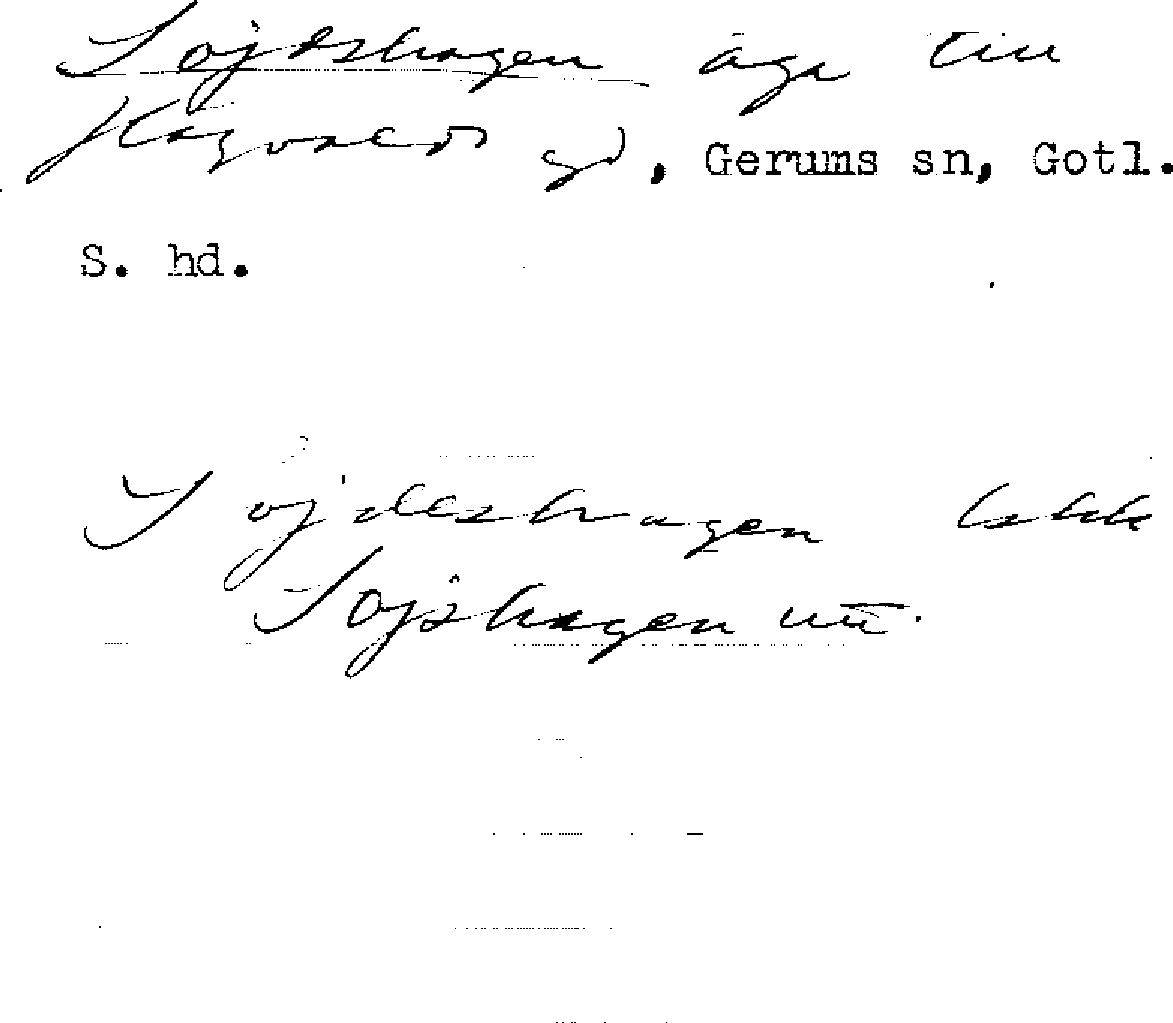 Sojdshagen äga till
Hagvalds gd, Gerums sn, Gotl.
S. hd.
Sojdeshagen
Sojshagen